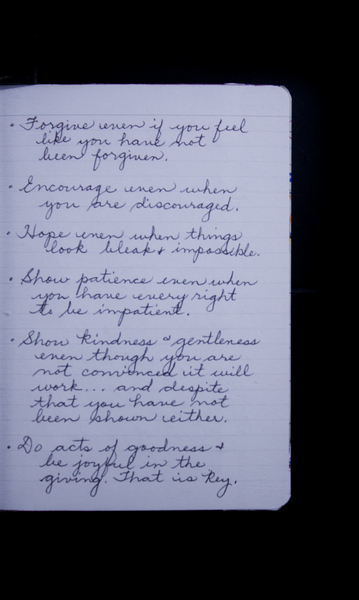 • Forgive even if you feel
like you have not
been forgiven.
• Encourage even when
you are discouraged.
• Hope even when things
look bleak & impossible.
• Show patience even when
you have every right
to be impatient.
• Show kindness & gentleness
even though you are
not convinced it will
work... and despite
that you have not
been shown either.
• Do acts of goodness &
be joyful in the
giving. That is key.